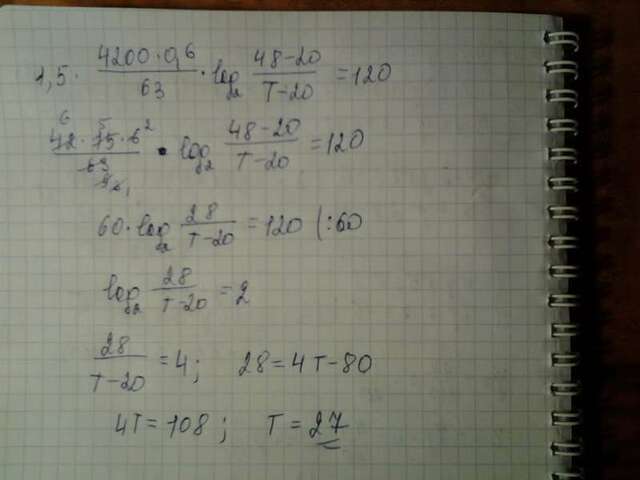 1,5 · 4200·0,6/63 · log₂ 48-20/T-20 = 120
42·15·6/63 · log₂ 48-20/T-20 = 120
60·log₂ 28/T-20 = 120 |:60
log₂ 28/T-20 = 2
28/T-20 = 4; 28 = 4T-80
4T = 108; T = 27